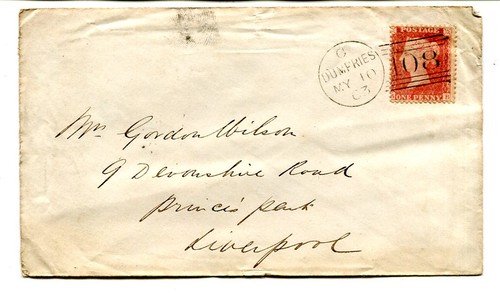 POSTAGE
ONE PENNY
108
C
DUMFRIES
MY 10
63
Mrs Gordon Wilson
9 Devonshire Road
Prince's Park
Liverpool